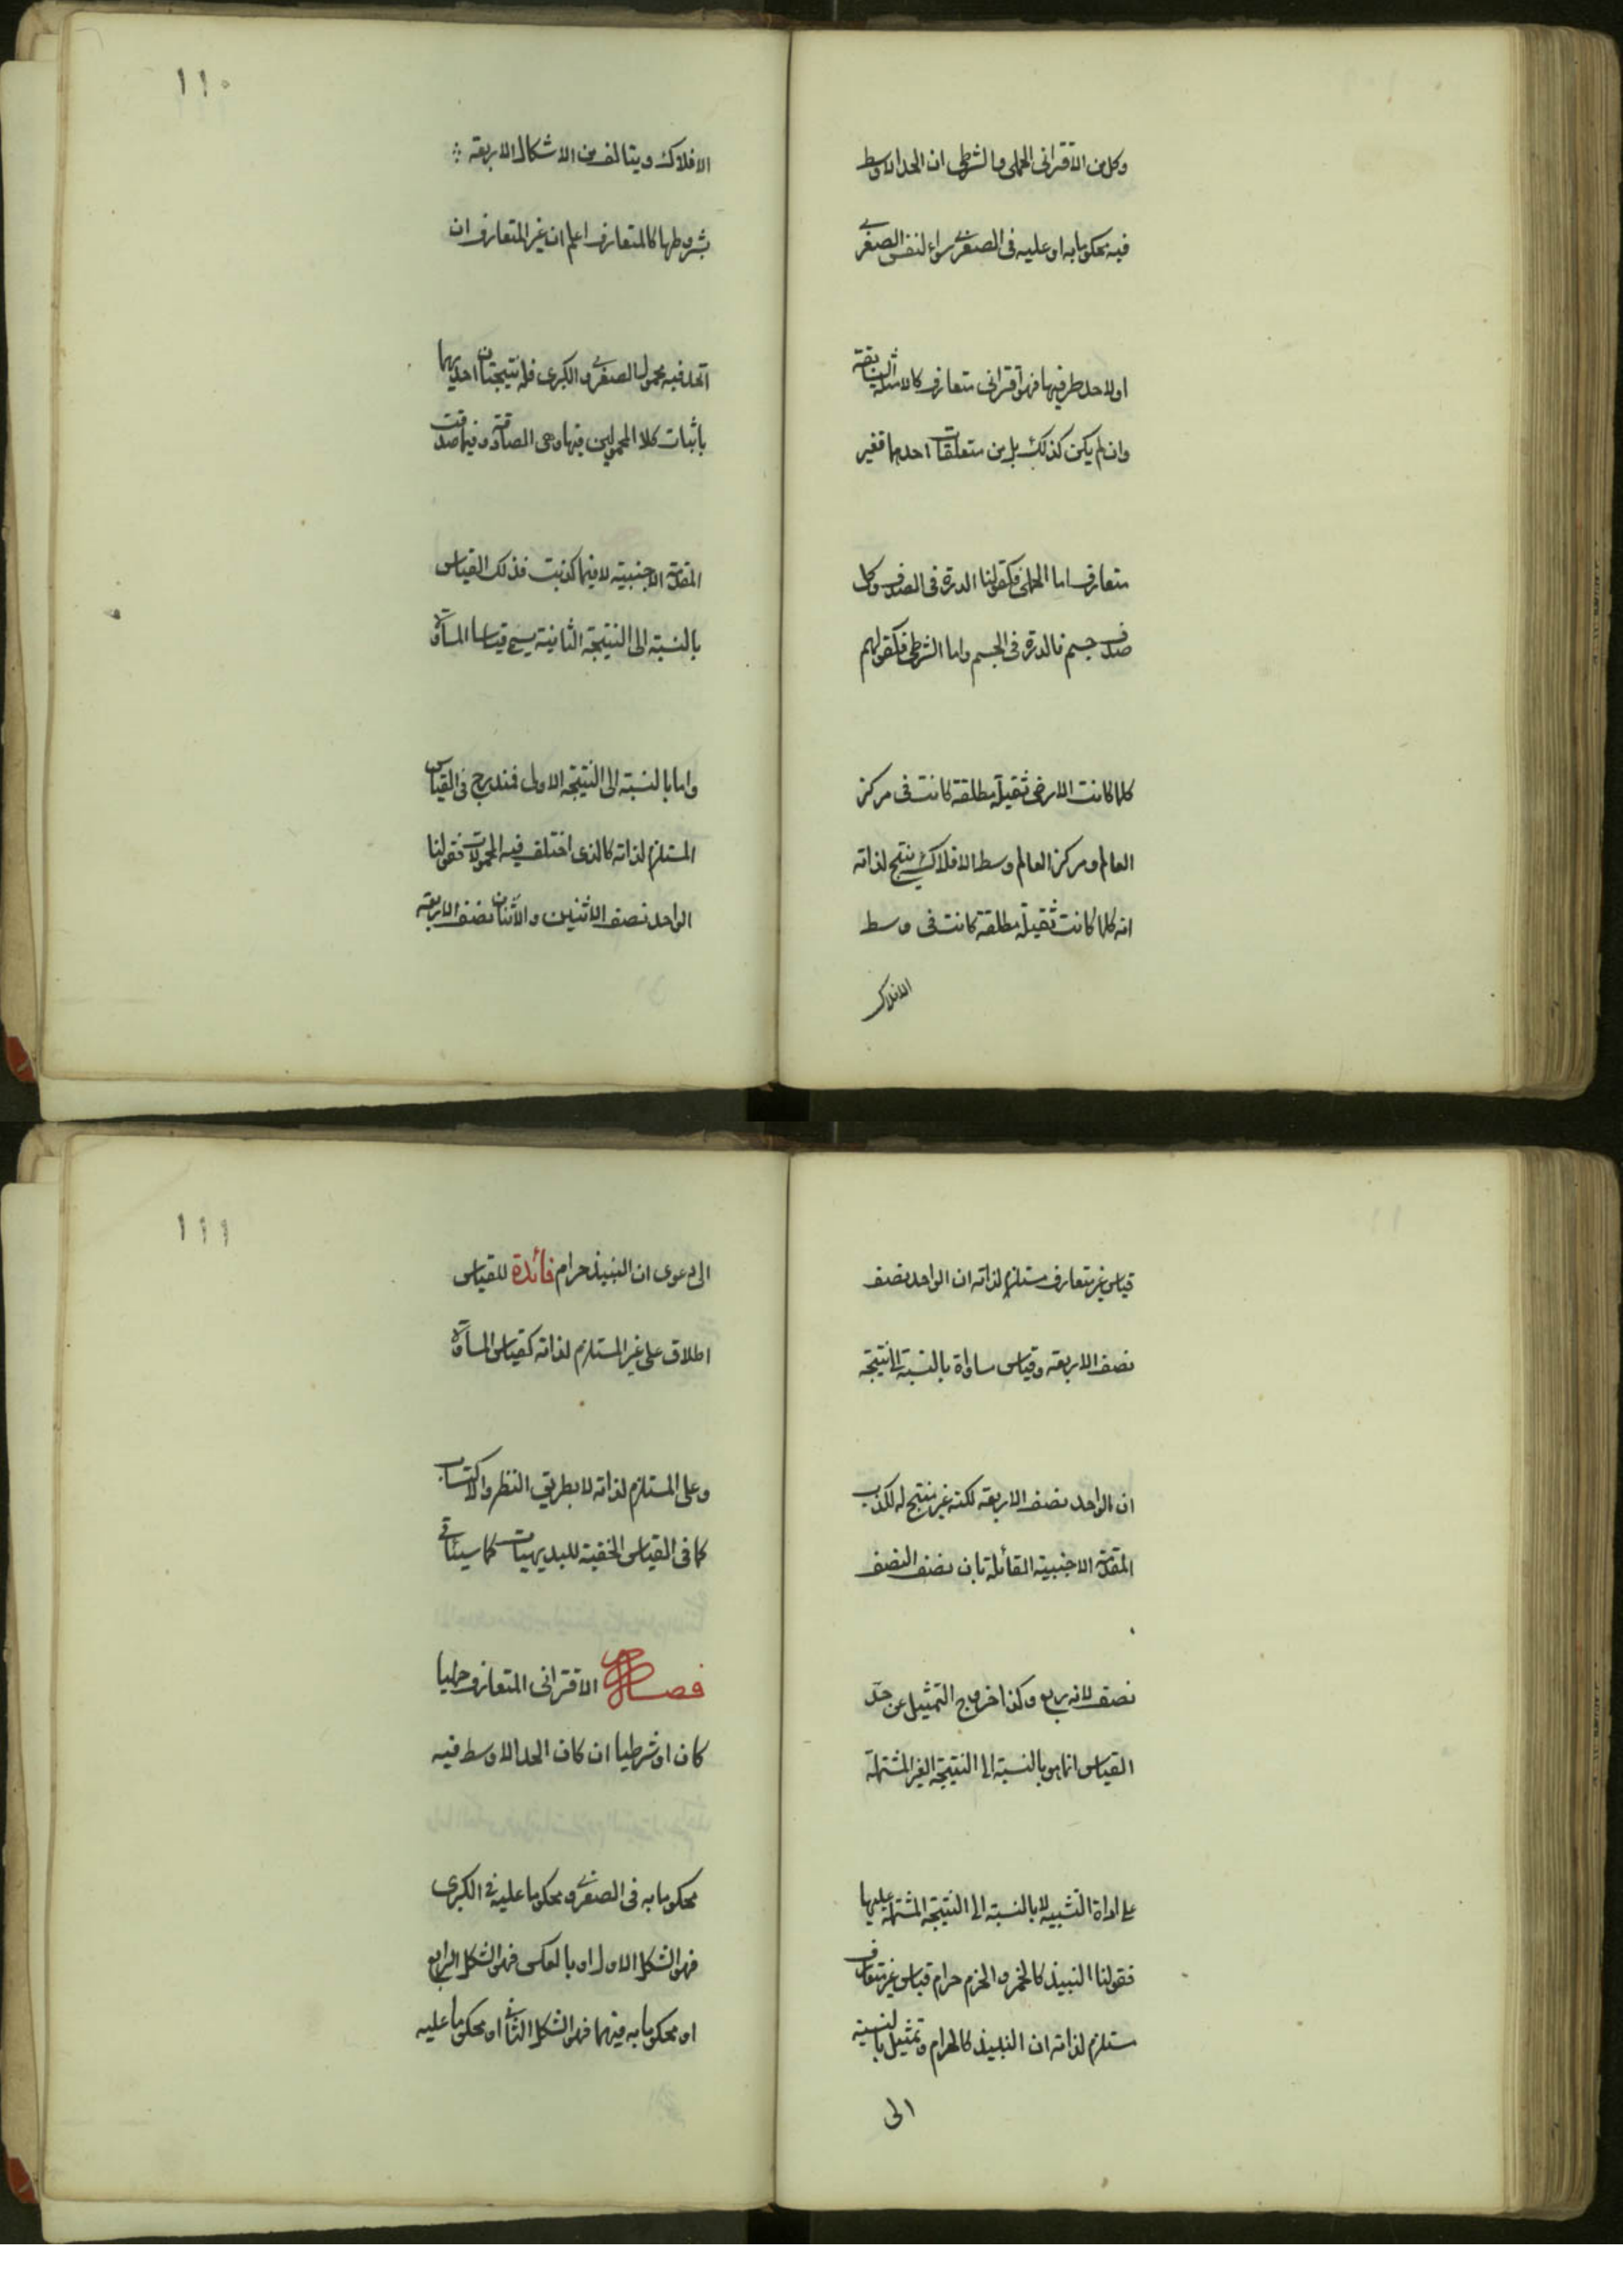 وكل من الاقترانى الحملى والشرطى ان الحد الاوسط
فيه محكوما به او عليه فى الصغرى سواء لنفس الصغرى
او لاحد طرفيها فهو اقترانى متعارف كالامثلة السابقة
وان لم يكن كذلك بل من متعلقات احدهما فغير
متعارف اما الحملى فكقولنا الدرة فى الصدف وكل
صدف جسم فالدرة فى الجسم واما الشرطى فكقولهم
كلما كانت الارض ثقيلة مطلقة كانت فى مركز
العالم ومركز العالم وسط الافلاك ينتج لذاته
انه كلما كانت ثقيلة مطلقة كانت فى وسط
الافلاك
١١٠
الافلاك ويتالف من الاشكال الاربعة
بشروطها كالمتعارف اعلم ان غير المتعارف ان
اتحد فيه محمول الصغرى والكبرى فله نتيجتان احديهما
باثبات كلا المحمولين فيها وهى الصادقة وفيما صدقت
المقدمة الاجنبية لا فيما كذبت فذلك القياس
بالنسبة الى النتيجة الثانية يسمى قياسا المساواة
واما بالنسبة الى النتيجة الاولى فمندرج فى القياس
المستلزم لذاته كالذى اختلف فيه المحمولات فقولنا
الواحد نصف الاثنين والاثنان نصف الاربعة
قياس غير متعارف مستلزم لذاته ان الواحد نصف
نصف الاربعة وقياس مساواة بالنسبة الى نتيجة
ان الواحد نصف الاربعة لكنه غير منتج له لكذب
المقدمة الاجنبية القائلة بان نصف النصف
نصف لانه ربع وكذا خروج التمثيل عن حد
القياس انما هو بالنسبة الى النتيجة الغير المشتملة
على اداة التشبيه لا بالنسبة الى النتيجة المشتملة عليها
فقولنا النبيذ كالخمر والخمر حرام قياس غير متعارف
مستلزم لذاته ان النبيذ كالحرام وتمثيل بالنسبة
الى
١١١
الى دعوى ان النبيذ حرام فائدة للقياس
اطلاق على غير المستلزم لذاته كقياس المساواة
وعلى المستلزم لذاته لا بطريق النظر والاكتساب
كما فى القياس الخفية للبديهيات كما سيئاتى
فصل الاقترانى المتعارف حمليا
كان او شرطيا ان كان الحد الاوسط فيه
محكوما به فى الصغرى ومحكوما عليه فى الكبرى
فهو الشكل الاول او بالعكس فهو الشكل الرابع
او محكوما به فيهما فهو الشكل الثانى او محكوما عليه